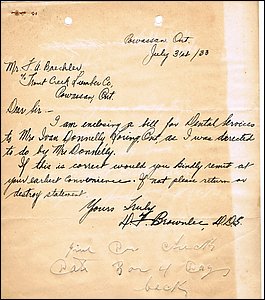 Powassan, Ont.
July 3rd / 33
Mr. F. A. Brechler
℅ Trout Creek Lumber Co.
Powassan, Ont.
Dear Sir -
I am enclosing a bill for Dental Services
to Mrs Ivan Donnelly Loring, Ont. as I was derected
to do by Mr Donnelly.
If this is correct would you kindly remit at
your earliest convenience. If not please return or
destroy statement
Yours Truly
Brownlee, D.D.S.
check
back